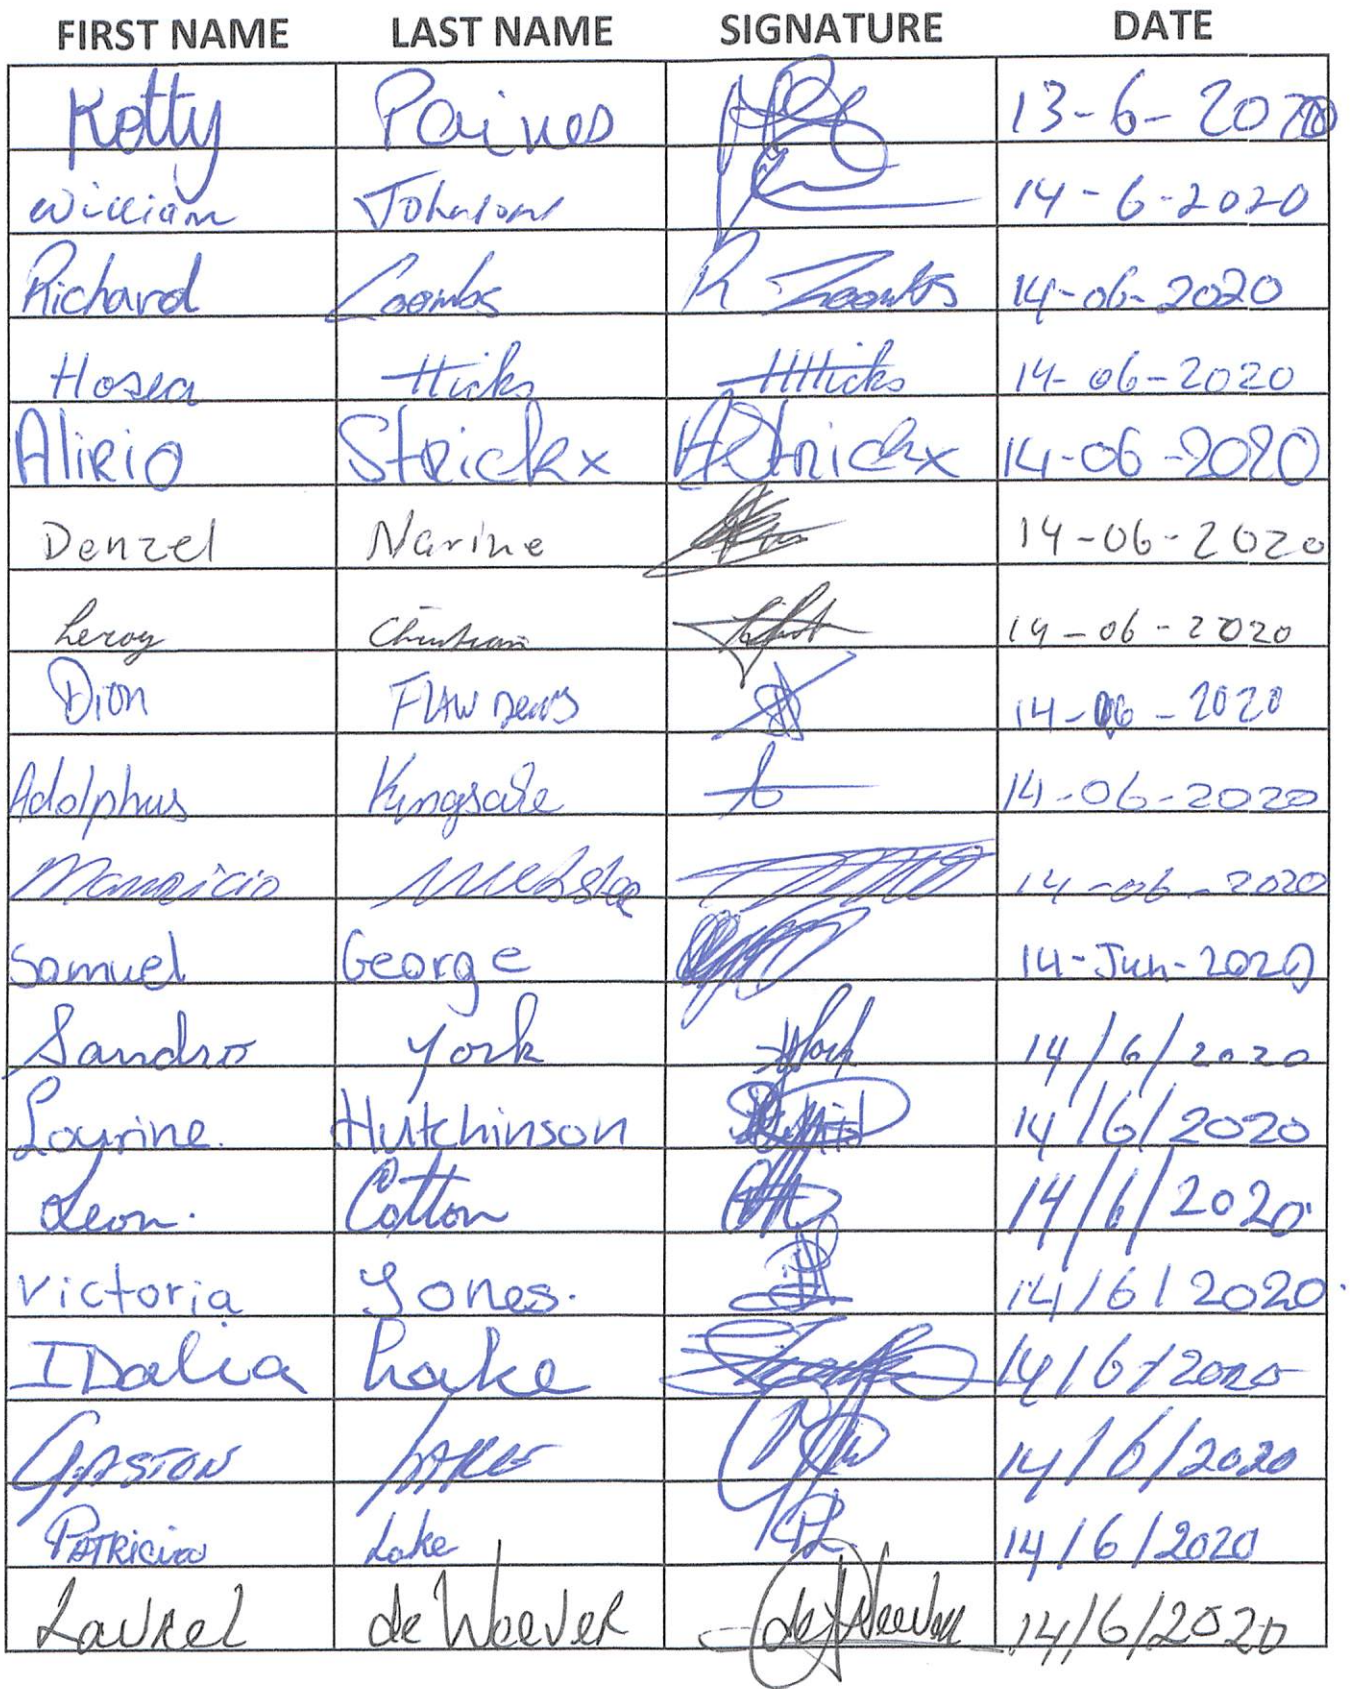 FIRST NAME LAST NAME SIGNATURE DATE
Ketty Paines 13-6-2020
William Johnson 14-6-2020
Richard Coombs R Coombs 14-06-2020
Hosea Hicks HHicks 14-06-2020
Alirio Strickx AStrickx 14-06-2020
Denzel Narine 14-06-2020
Leroy Christian 14-06-2020
Dion 14-06-2020
Adolphus Kingsale 14-06-2020
Mauricio Webster 14-06-2020
Samuel George 14-Jun-2020
Sandro York 14/6/2020
Laurine. Hutchinson 14/6/2020
Leon. Cotton 14/6/2020.
Victoria Jones. 14/6/2020.
IDalia Lake 14/6/2020
GASTON LAKE 14/6/2020
PATRicia Lake PL 14/6/2020
Laurel de Weever de Weever 14/6/2020